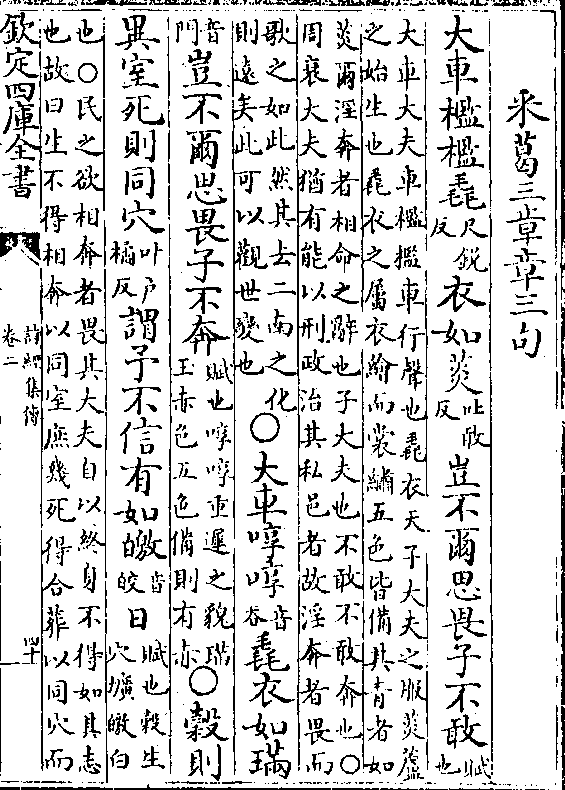 采葛三章章三句
大車檻檻毳尺銳反衣如菼吐敢反豈不爾思畏子不敢賦也
大車大夫車檻檻車行聲也毳衣天子大夫之服菼蘆
之始生也毳衣之屬衣繪而裳繡五色皆備其青者如
菼爾淫奔者相命之辭也子大夫也不敢不敢奔也○
周衰大夫猶有能以刑政治其私邑者故淫奔者畏而
歌之如此然其去二南之化則遠矣此可以觀世變也○大車啍啍音吞毳衣如璊
音門豈不爾思畏子不奔賦也啍啍重遲之貌璊玉赤色五色備則有赤○穀則
異室死則同穴叶戶橘反謂予不信有如皦音皎日賦也穀生穴壙皦白
也○民之欲相奔者畏其大夫自以終身不得如其志
也故曰生不得相奔以同室庶幾死得合葬以同穴而
欽定四庫全書
詩經集傳
卷二
四十